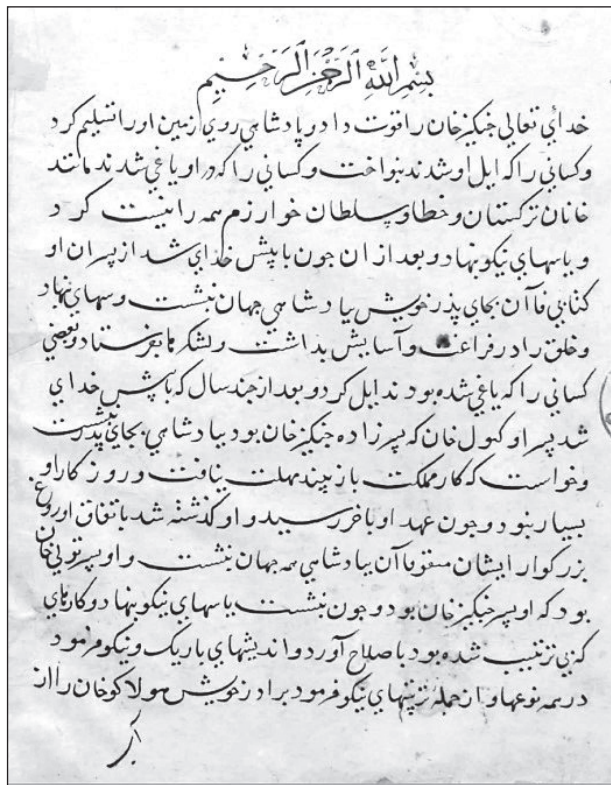 بسم الله الرحمن الرحيم
خداي تعالي جنكيز خان را قوت داد و پادشاهي روي زمين او را تسليم كرد
و كساني را كه ايل او شدند بنواخت و كساني را كه در او ياغي شدند مانند
خانان تركستان و خطا و سلطان خوارزم همه را نيست كرد
و ياسهاي نيكو بنهاد و بعد از ان جون با پيش خداي شد از پسران او
قاآن بجاي پدر خويش بپادشاهي جهان بنشست و سهاي بنهاد
و خلق را در فراغت و آسايش بداشت و لشكرها بفرستاد و بعضي
كساني را كه ياغي شده بودند ايل كرد و بعد از جند سال كه با پيش خداي
شد پسر او كيول خان كه پسرزاده جنكيز خان بود بپادشاهي بجاي پدر بنشست
و خواست كه كار مملكت باز بيند مهلت نيافت و روزكار او
بسيار نبود و جون عهد او باخر رسيد و او كذشته شد باتفاق اوروغ
بزركوار ايشان منكوقاآن بپادشاهي همه جهان بنشست و او پسر تولي خان
بود كه او پسر جنكيز خان بود و جون بنشست ياسهاي نيكو بنهاد و كارهاي
كه بي ترتيب شده بود باصلاح آورد و انديشهاي باريك و نيكو فرمود
در همه نوعها و از جمله ترتيبهاي نيكو فرمود برادر خويش هولاكو خان را از
آب